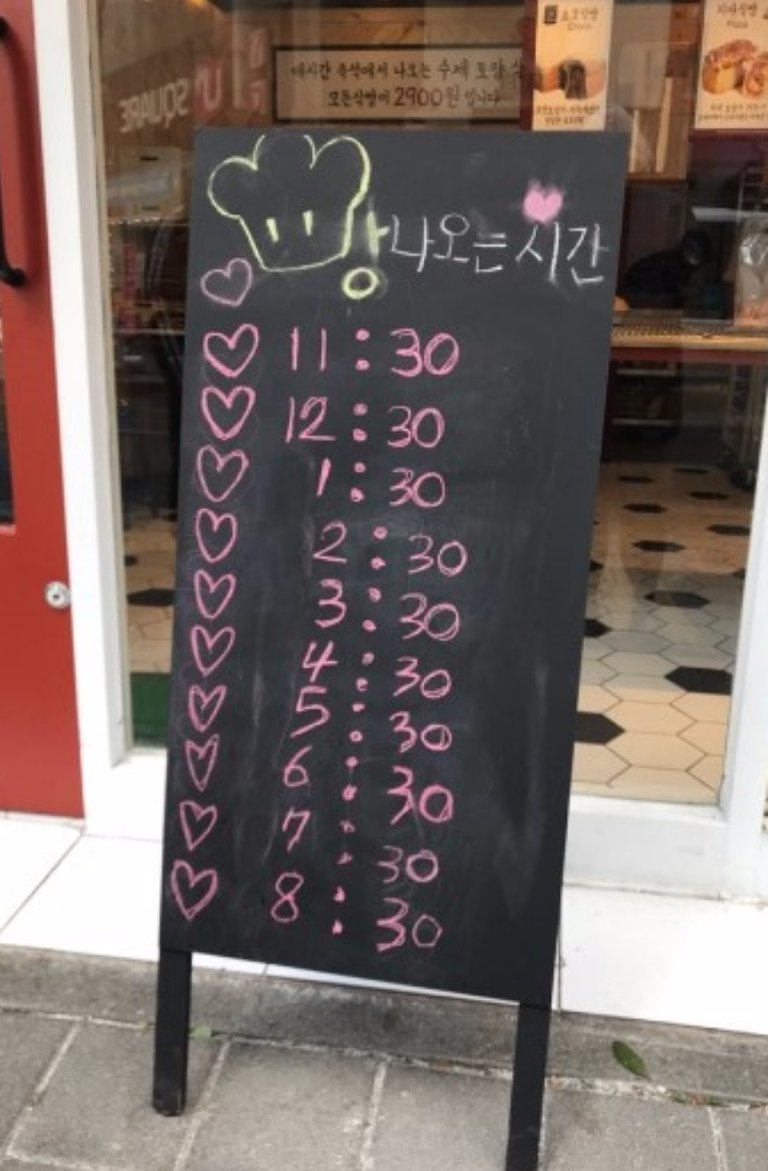 매시간 즉석에서 나오는 수제 토핑 식
모든식빵이 2900원 입니다
초코식빵
Choco
피자식빵
Pizza
SQUARE
빵 나오는 시간
11:30
12:30
1:30
2:30
3:30
4:30
5:30
6:30
7:30
8:30